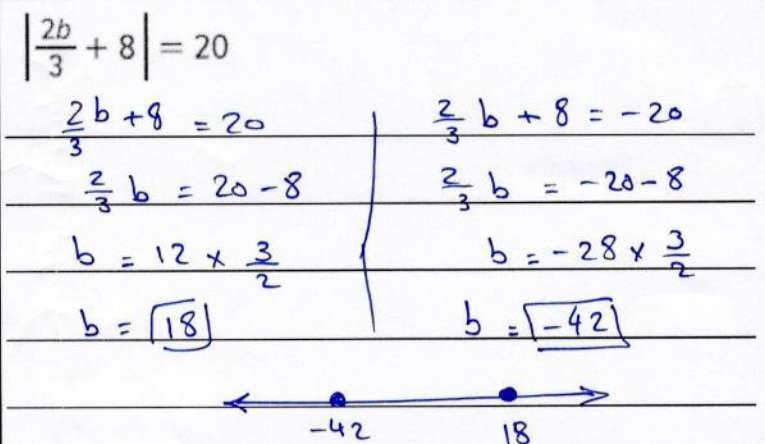 |2b/3 + 8| = 20
2/3 b + 8 = 20
2/3 b = 20 - 8
b = 12 × 3/2
b = 18
2/3 b + 8 = -20
2/3 b = -20 - 8
b = -28 × 3/2
b = -42
-42 18